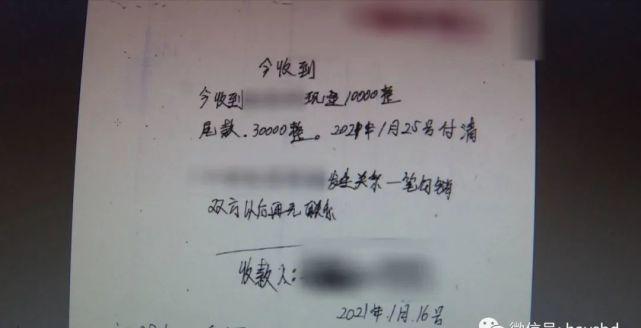 今收到
今收到 现金10000整
尾款.30000整。2021年1月25号付清
发生关系一笔勾销
双方以后再无联系
收款人:
2021年.1月.16号
微信号: